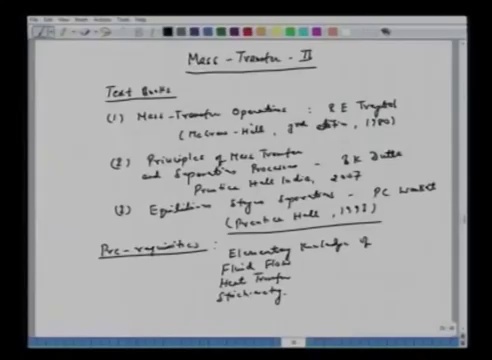 Mass - Transfer - II
Text Books
(1) Mass-Transfer Operations : R E Treybal
(McGraw-Hill, 3rd edition, 1980)
(2) Principles of Mass Transfer
and Separation Processes - B K Dutta
Prentice Hall India, 2007
(3) Equilibrium Stages Separations - PC Wankat
(Prentice Hall, 1993)
Pre-requisities : Elementary Knowledge of
Fluid Flow
Heat Transfer
Stichiometry.